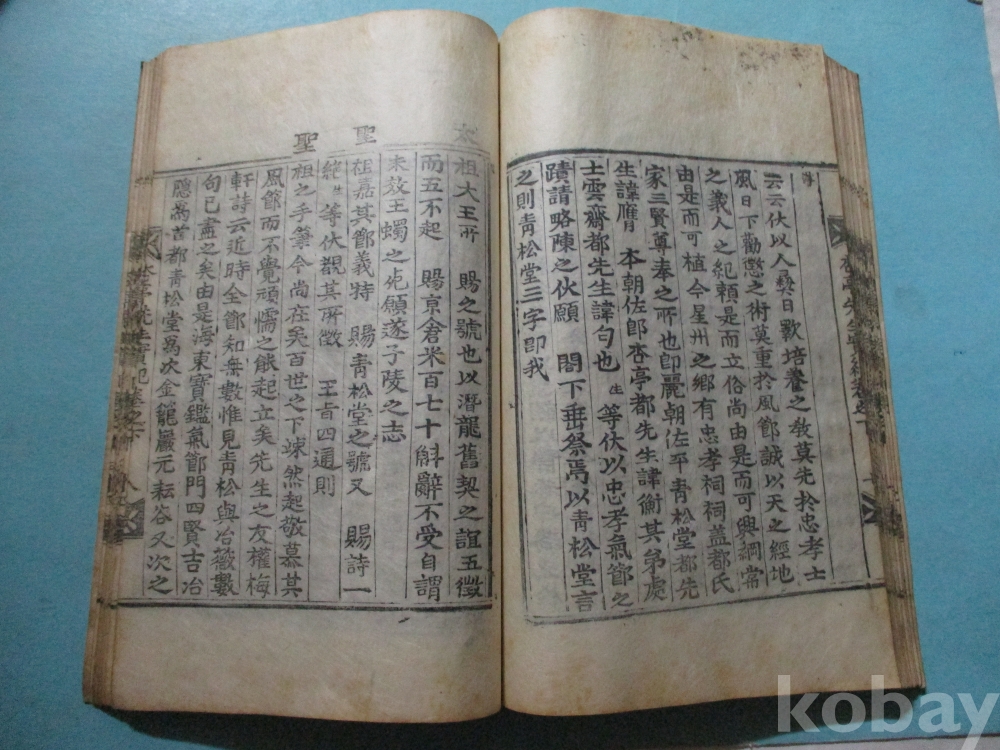 云云伏以人彜日斁培養之敎莫先於忠孝士
風日下勸懲之術莫重於風節誠以天之經地
之義人之紀賴是而立俗尚由是而可興綱常
由是而可植今星州之鄉有忠孝祠祠盖都氏
家三賢尊奉之所也卽麗朝佐平青松堂都先
生諱膺 本朝佐郎杏亭都先生諱衡其弟處
士雲齋都先生諱勻也 生等伏以忠孝氣節之
蹟請略陳之伏願 閤下垂祭焉以青松堂言
之則青松堂三字卽我
太祖大王所 賜之號也以潛龍舊契之誼五徵
而五不起 賜京倉米百七十斛辭不受自謂
未效王蠋之死願遂子陵之志
聖祖嘉其節義特 賜青松堂之號又 賜詩一
絶 生等伏覩其所徵 王旨四通則
聖祖之手筆今尚在矣百世之下竦然起敬慕其
風節而不覺頑懦之餘起立矣先生之友權梅
軒詩云近時全節知無數惟見青松與冶薇數
句已盡之矣由是海東寶鑑氣節門四賢吉冶
隱爲首都青松堂爲次金籠巖元耘谷又次之
kobay